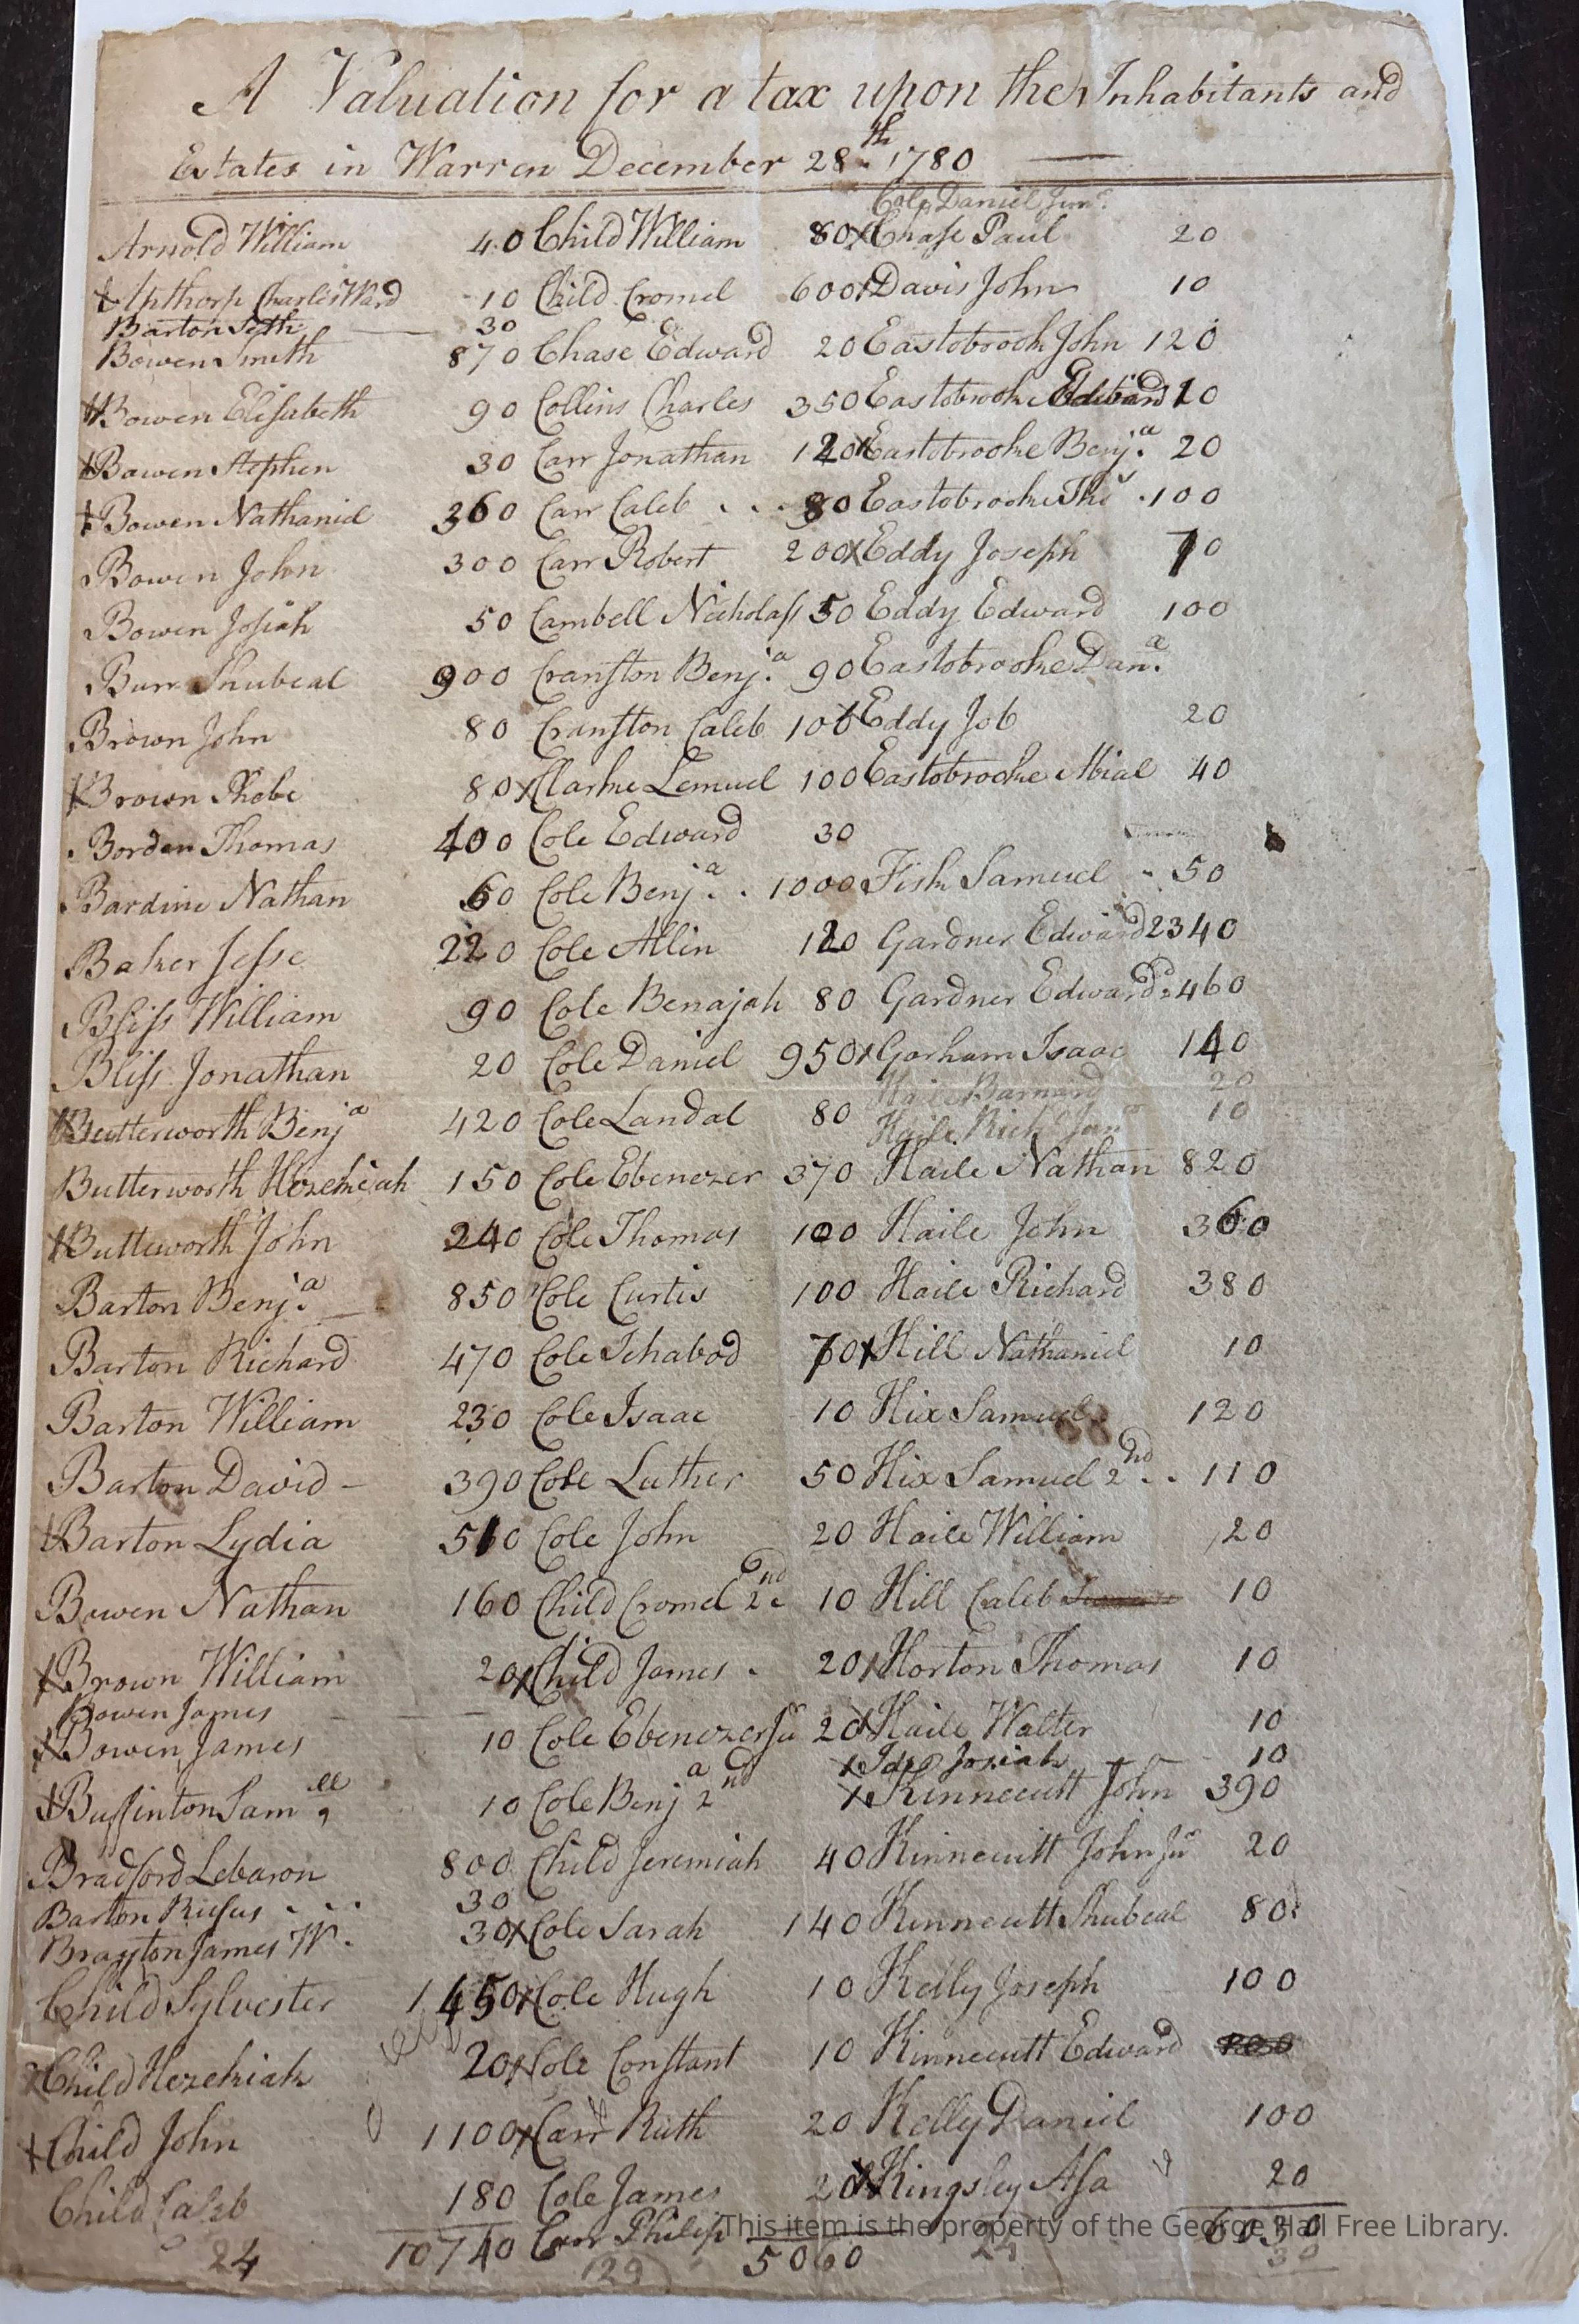 A Valuation for a tax upon the Inhabitants and
Estates in Warren December 28th 1780
Cole Daniel Junr
Arnold William 40 Child William 80 x Chase Paul 20
Apthorp Charles Ward 10 Child Cromel 600 Davis John 10
Barton Seth 30
Bowen Smith 870 Chase Edward 20 Eastobrook John 120
Bowen Elisabeth 90 Collins Charles 350 Eastobrooke Edward 10
Bowen Stephen 30 Carr Jonathan 120 x Eastobrooke Benja 20
Bowen Nathaniel 360 Carr Caleb . . . 80 Eastobrooke Ths . 100
Bowen John 300 Carr Robert 200 x Eddy Joseph 70
Bowen Josiah 50 Cambell Nicholass 50 Eddy Edward 100
Burr Shubeal 900 Cranston Benja 90 Eastobrooke Dana
Brown John 80 Cranston Caleb 100 x Eddy Job 20
Brown Phobe 80 x Clarke Lemuel 100 Eastobrooke Abial 40
Borden Thomas 400 Cole Edward 30
Bardine Nathan 60 Cole Benja . . 1000 Fish Samuel - 50
Baker Jesse 220 Cole Allin 120 Gardner Edward 2340
Bliss William 90 Cole Benajah 80 Gardner Edward 460
Bliss Jonathan 20 Cole Daniel 950 x Gorham Isaac 140
Haile Barnard 20
Butterworth Benja 420 Cole Landal 80 Haile Rich Junr 10
Butterworth Hezekiah 150 Cole Ebenezer 370 Haile Nathan 820
Butterworth John 240 Cole Thomas 100 Haile John 360
Barton Benja 850 Cole Curtis 100 Haile Richard 380
Barton Richard 470 Cole Ichabod 70 x Hill Nathaniel 10
Barton William 230 Cole Isaac 10 Hix Samuel 120
Barton David - 390 Cole Luther 50 Hix Samuel 2nd . . 110
Barton Lydia 510 Cole John 20 Haile William 20
Bowen Nathan 160 Child Cromel 2nd 10 Hill Caleb 10
Brown William 20 x Child James . 20 Horton Thomas 10
Bowen James
Bowen James 10 Cole Ebenezer Jur 20 x Haile Walter 10
x Ide Josiah 10
Buffinton Samll 10 Cole Benja 2nd x Kinnecutt John 390
Bradford Lebaron 800 Child Jeremiah 40 Kinnecutt John Jur 20
Barton Rufus . . . 30
Brayton James W. 30 x Cole Sarah 140 Kinnecutt Shubeal 80
Child Sylvester 1450 x Cole Hugh 10 Kelly Joseph 100
Child Hezekiah 20 x Cole Constant 10 Kinnecutt Edward
x Child John 1100 x Carr Ruth 20 Kelly Daniel 100
Child Caleb 180 Cole James 20 x Kingsley Asa 20
24 10740 Carr Philip 5060 24 6030
29 30
This item is the property of the George Hail Free Library.